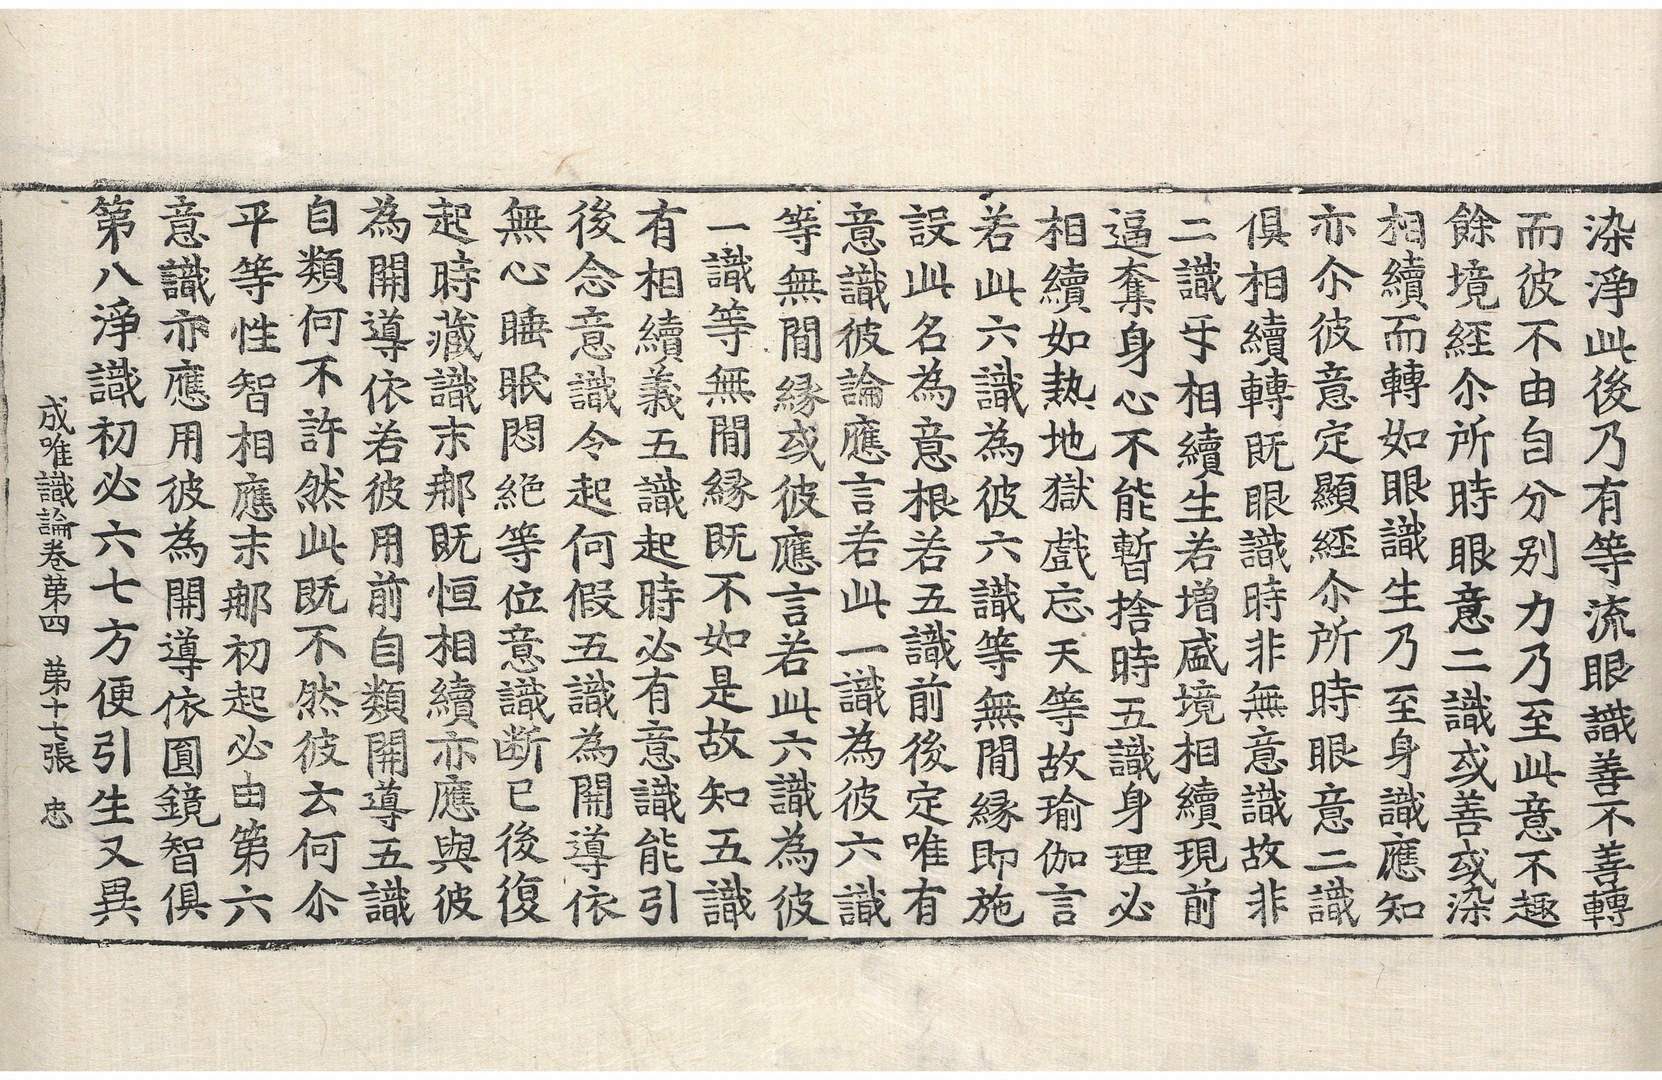 染淨此後乃有等流眼識善不善轉
而彼不由自分别力乃至此意不趣
餘境經尒所時眼意二識或善或染
相續而轉如眼識生乃至身識應知
亦尒彼意定顯經尒所時眼意二識
俱相續轉既眼識時非無意識故非
二識㸦相續生若增盛境相續現前
逼奪身心不能暫捨時五識身理必
相續如熱地獄戲忘天等故瑜伽言
若此六識為彼六識等無閒緣即施
設此名為意根若五識前後定唯有
意識彼論應言若此一識為彼六識
等無閒緣或彼應言若此六識為彼
一識等無閒緣既不如是故知五識
有相續義五識起時必有意識能引
後念意識令起何假五識為開導依
無心睡眠悶絶等位意識断已後復
起時藏識末那既恒相續亦應與彼
為開導依若彼用前自類開導五識
自類何不許然此既不然彼云何尒
平等性智相應末那初起必由第六
意識亦應用彼為開導依圓鏡智俱
第八淨識初必六七方便引生又異
成唯識論卷苐四 苐十七張 忠